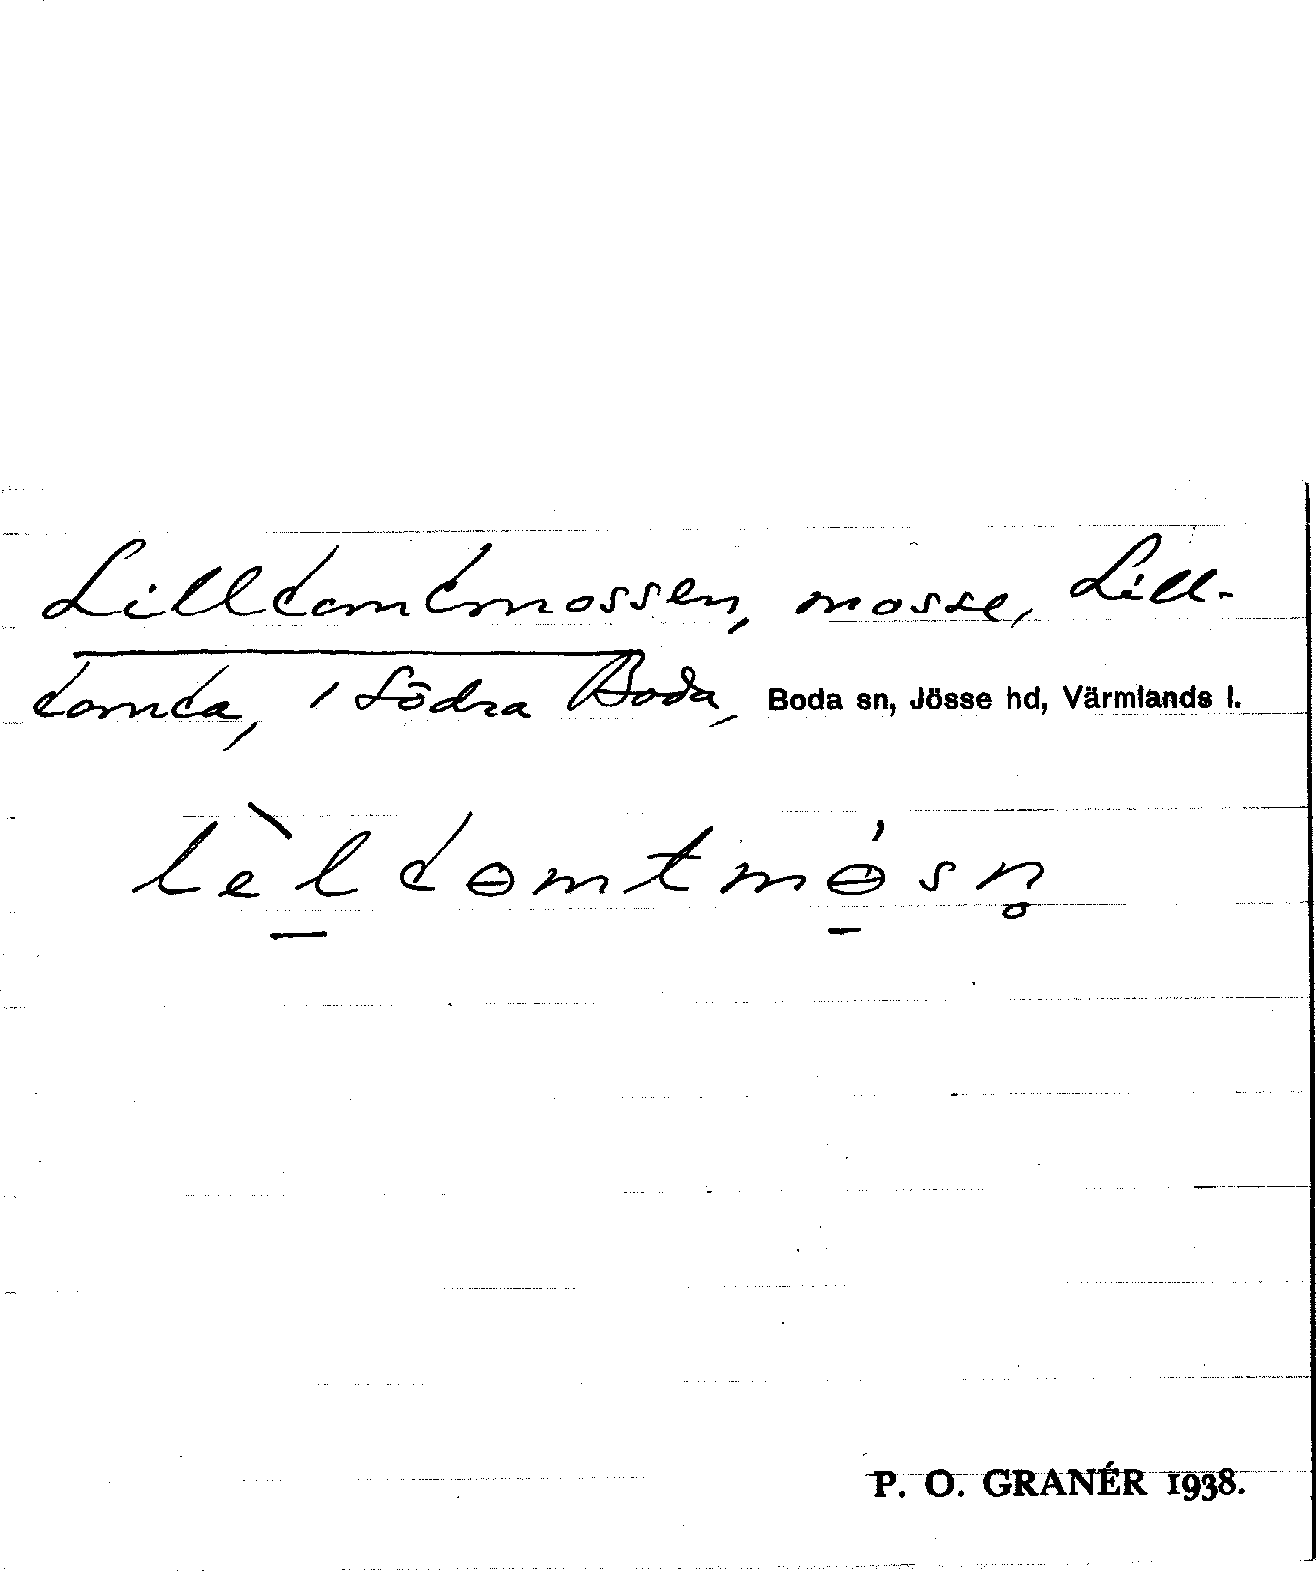 Lilltomtmossen, mosse, Lill-
tomta, i Södra Boda, Boda sn, Jösse hd, Värmlands l.
lèltɵmtmɵ́sn̥
P. O. GRANÉR 1938.